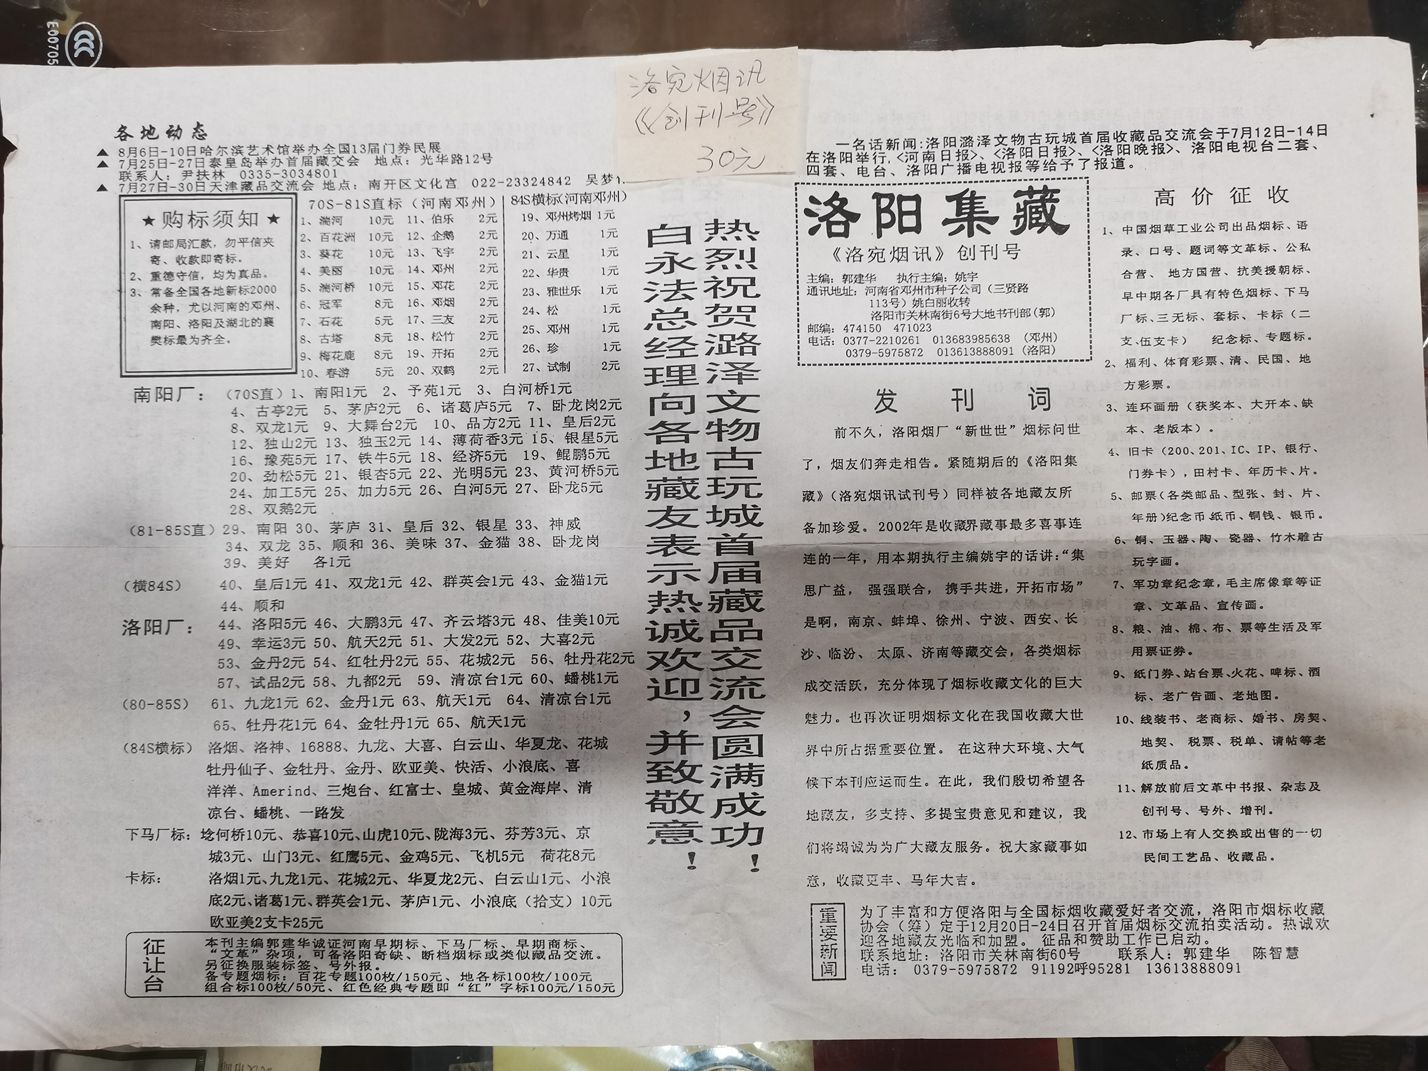 E00705
洛宛烟讯
《创刊号》
30元
各地动态
▲ 8月6日-10日哈尔滨艺术馆举办全国13届门券民展
▲ 7月25日-27日秦皇岛举办首届藏交会 地点：光华路12号
联系人：尹扶林 0335-3034801
▲ 7月27日-30日天津藏品交流会 地点：南开区文化宫 022-23324842 吴梦
★ 购标须知 ★
1、请邮局汇款，勿平信夹
寄、收款即寄标。
2、重德守信，均为真品。
3、常备全国各地新标2000
余种，尤以河南的邓州、
南阳、洛阳及湖北的襄
樊标最为齐全。
70S-81S直标（河南邓州）
1、湍河 10元 11、伯乐 2元
2、百花洲 10元 12、企鹅 2元
3、葵花 10元 13、飞宇 2元
4、美丽 10元 14、邓州 2元
5、湍河桥 10元 15、邓花 2元
6、冠军 8元 16、邓烟 2元
7、石花 5元 17、三友 2元
8、古塔 8元 18、松竹 2元
9、梅花鹿 8元 19、开拓 2元
10、春游 5元 20、双鹤 2元
84S横标(河南邓州)
19、邓州烤烟 1元
20、万通 1元
21、云星 1元
22、华贵 1元
23、雅世乐 1元
24、松 1元
25、邓州 1元
26、珍 1元
27、试制 2元
南阳厂：（70S直）1、南阳1元 2、予苑1元 3、白河桥1元
4、古亭2元 5、茅庐2元 6、诸葛庐5元 7、卧龙岗2元
8、双龙1元 9、大舞台2元 10、品方2元 11、皇后2元
12、独山2元 13、独玉2元 14、薄荷香3元 15、银星5元
16、豫苑5元 17、铁牛5元 18、经济5元 19、鲲鹏5元
20、劲松5元 21、银杏5元 22、光明5元 23、黄河桥5元
24、加工5元 25、加力5元 26、白河5元 27、卧龙5元
28、双鹅2元
（81-85S直）29、南阳 30、茅庐 31、皇后 32、银星 33、神威
34、双龙 35、顺和 36、美味 37、金猫 38、卧龙岗
39、美好 各1元
（横84S） 40、皇后1元 41、双龙1元 42、群英会1元 43、金猫1元
44、顺和
洛阳厂： 44、洛阳5元 46、大鹏3元 47、齐云塔3元 48、佳美10元
49、幸运3元 50、航天2元 51、大发2元 52、大喜2元
53、金丹2元 54、红牡丹2元 55、花城2元 56、牡丹花2元
57、试品2元 58、九都2元 59、清凉台1元 60、蟠桃1元
（80-85S） 61、九龙1元 62、金丹1元 63、航天1元 64、清凉台1元
65、牡丹花1元 64、金牡丹1元 65、航天1元
（84S横标） 洛烟、洛神、16888、九龙、大喜、白云山、华夏龙、花城
牡丹仙子、金牡丹、金丹、欧亚美、快活、小浪底、喜
洋洋、Amerind、三炮台、红富士、皇城、黄金海岸、清
凉台、蟠桃、一路发
下马厂标：埝何桥10元、恭喜10元、山虎10元、陇海3元、芬芳3元、京
城3元、山门3元、红鹰5元、金鸡5元、飞机5元 荷花8元
卡标： 洛烟1元、九龙1元、花城2元、华夏龙2元、白云山1元、小浪
底2元、诸葛1元、群英会1元、茅庐1元、小浪底（拾支）10元
欧亚美2支卡25元
征让台
本刊主编郭建华诚证河南早期标、下马厂标、早期商标、
“文革”杂项，可备洛阳奇缺、断档烟标或类似藏品交流。
另征换服装标签、号外报。
备专题烟标：百花专题100枚/150元、地各标100枚/100元
组合标100枚/50元、红色经典专题即“红”字标100元/150元
热烈祝贺潞泽文物古玩城首届藏品交流会圆满成功！
白永法总经理向各地藏友表示热诚欢迎，并致敬意！
一名话新闻:洛阳潞泽文物古玩城首届收藏品交流会于7月12日-14日
在洛阳举行，<河南日报>、<洛阳日报>、<洛阳晚报>、洛阳电视台二套、
四套、电台、洛阳广播电视报等给予了报道。
洛阳集藏
《洛宛烟讯》创刊号
主编：郭建华 执行主编：姚宇
通讯地址：河南省邓州市种子公司（三贤路
113号）姚白丽收转
洛阳市关林南街6号大地书刊部（郭）
邮编：474150 471023
电话：0377-2210261 013683985638 （邓州）
0379-5975872 013613888091（洛阳）
发刊词
前不久，洛阳烟厂“新世世”烟标问世
了，烟友们奔走相告。紧随期后的《洛阳集
藏》（洛宛烟讯试刊号）同样被各地藏友所
备加珍爱。2002年是收藏界藏事最多喜事连
连的一年，用本期执行主编姚宇的话讲：“集
思广益，强强联合，携手共进，开拓市场”
是啊，南京、蚌埠、徐州、宁波、西安、长
沙、临汾、太原、济南等藏交会，各类烟标
成交活跃，充分体现了烟标收藏文化的巨大
魅力。也再次证明烟标文化在我国收藏大世
界中所占据重要位置。在这种大环境、大气
候下本刊应运而生。在此，我们殷切希望各
地藏友，多支持、多提宝贵意见和建议，我
们将竭诚为为广大藏友服务。祝大家藏事如
意，收藏更丰、马年大吉。
高价征收
1、中国烟草工业公司出品烟标、语
录、口号、题词等文革标、公私
合营、地方国营、抗美援朝标、
早中期各厂具有特色烟标、下马
厂标、三无标、套标、卡标（二
支、伍支卡） 纪念标、专题标。
2、福利、体育彩票、清、民国、地
方彩票。
3、连环画册（获奖本、大开本、缺
本、老版本）。
4、旧卡（200、201、IC、IP、银行、
门券卡），田村卡、年历卡、片。
5、邮票（各类邮品、型张、封、片、
年册）纪念币纸币、铜钱、银币。
6、铜、玉器、陶、瓷器、竹木雕古
玩字画。
7、军功章纪念章，毛主席像章等证
章、文革品、宣传画。
8、粮、油、棉、布、票等生活及军
用票证券。
9、纸门券、站台票、火花、啤标、酒
标、老广告画、老地图。
10、线装书、老商标、婚书、房契、
地契、税票、税单、请帖等老
纸质品。
11、解放前后文革中书报、杂志及
创刊号、号外、增刊。
12、市场上有人交换或出售的一切
民间工艺品、收藏品。
重要新闻
为了丰富和方便洛阳与全国标烟收藏爱好者交流，洛阳市烟标收藏
协会（筹）定于12月20日-24日召开首届烟标交流拍卖活动。热诚欢
迎各地藏友光临和加盟。征品和赞助工作已启动。
联系地址：洛阳市关林南街60号 联系人：郭建华 陈智慧
电话： 0379-5975872 91192呼95281 13613888091